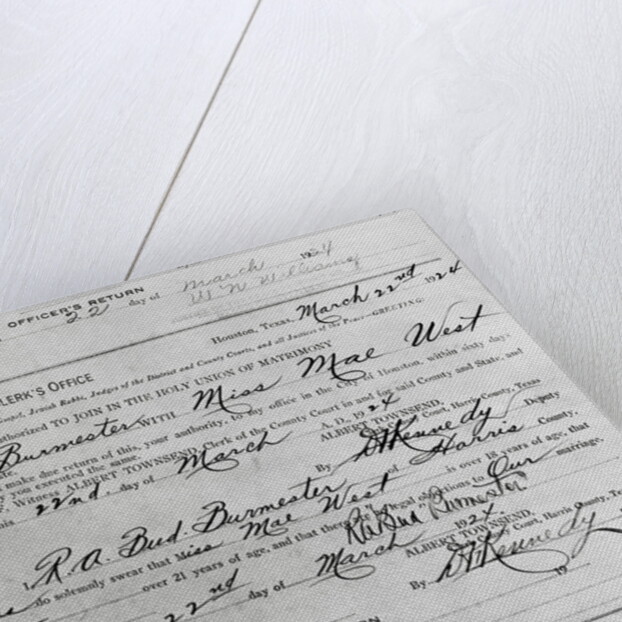 OFFICER'S RETURN
22 day of March 1924
W N Williams
Houston, Texas, March 22nd 1924
CLERK'S OFFICE
Jewish Rabbi, Judges of the District and County Courts, and all Justices of the Peace—GREETING:
TO JOIN IN THE HOLY UNION OF MATRIMONY
Burmester WITH Miss Mae West
make due return of this, your authority, to my office in the City of Houston, within sixty days
you executed the same.
Witness ALBERT TOWNSEND, Clerk of the County Court in and for said County and State, and
22nd. day of March A. D., 1924
ALBERT TOWNSEND,
Court, Harris County, Texas
By D H Kennedy Deputy
I, R. A. Bud. Burmester of Harris County,
do solemnly swear that Miss Mae West is over 18 years of age, that
over 21 years of age, and that there legal objections to Our marriage.
R A Bud Burmester
22nd day of March 1924.
ALBERT TOWNSEND,
County Court, Harris County,
By D H Kennedy
19